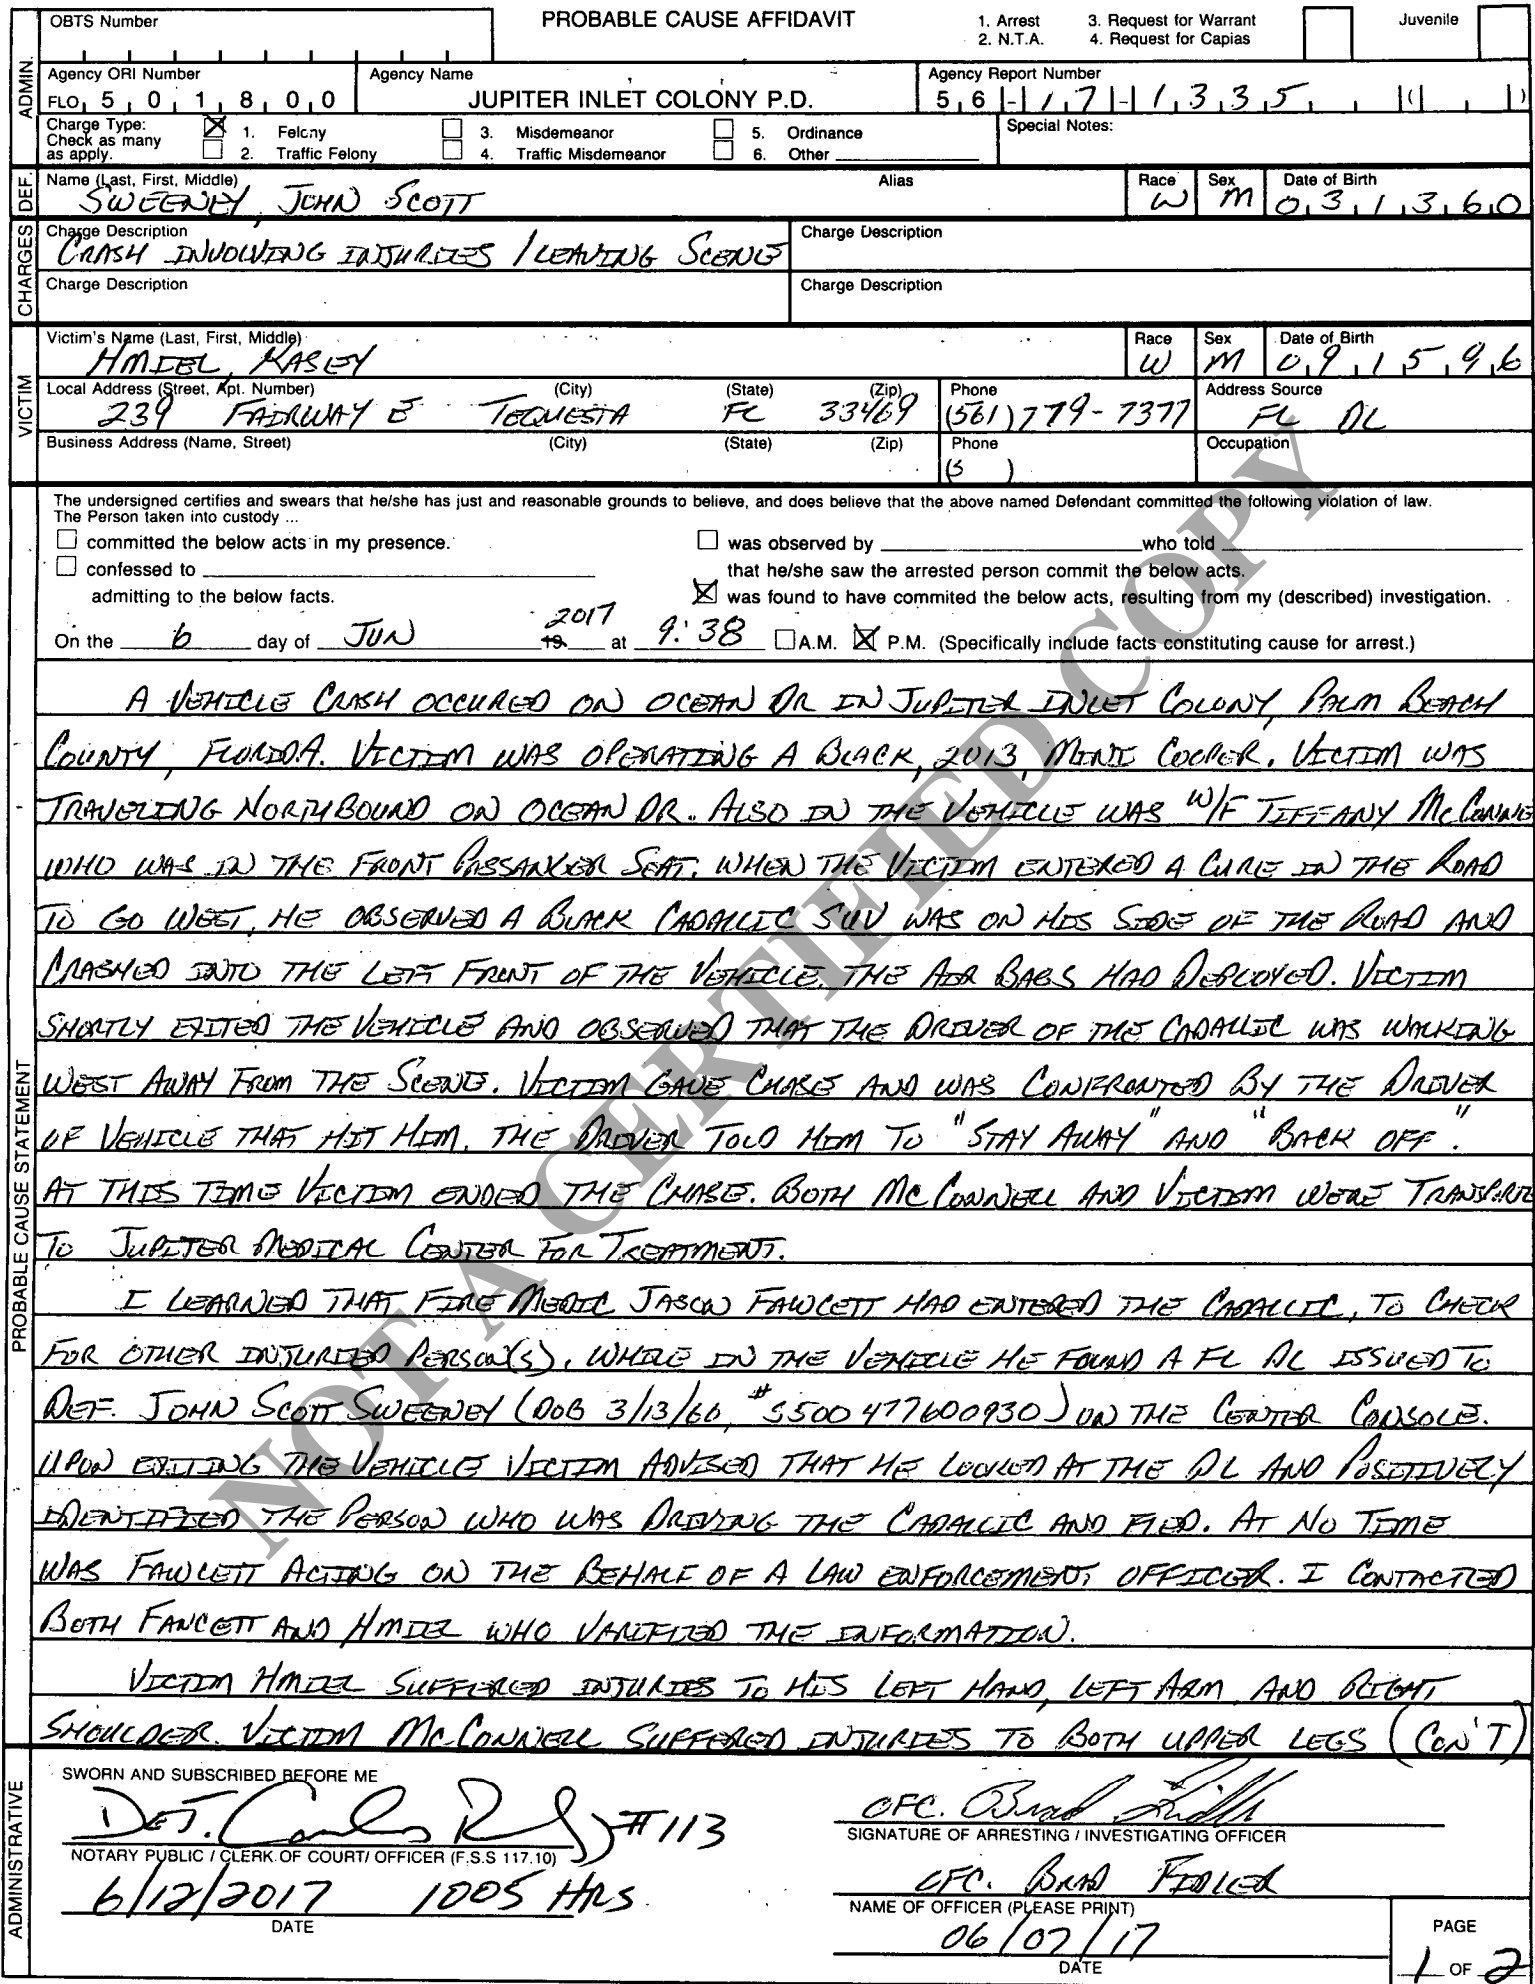 OBTS Number
PROBABLE CAUSE AFFIDAVIT
1. Arrest 3. Request for Warrant
2. N.T.A. 4. Request for Capias
Juvenile
ADMIN.
Agency ORI Number
FLO 5 0 1 8 0 0
Agency Name
JUPITER INLET COLONY P.D.
Agency Report Number
5 6 - 1 7 - 1 3 3 5
Charge Type:
Check as many
as apply.
1. Felony
2. Traffic Felony
3. Misdemeanor
4. Traffic Misdemeanor
5. Ordinance
6. Other
Special Notes:
DEF.
Name (Last, First, Middle)
SWEENEY, JOHN SCOTT
Alias
Race
W
Sex
M
Date of Birth
0 3 1 3 6 0
CHARGES
Charge Description
CRASH INVOLVING INJURIES / LEAVING SCENE
Charge Description
Charge Description
Charge Description
VICTIM
Victim's Name (Last, First, Middle)
HMIEL, KASEY
Race
W
Sex
M
Date of Birth
0 9 1 5 9 6
Local Address (Street, Apt. Number) (City) (State) (Zip)
239 FAIRWAY E TEQUESTA FL 33469
Phone
(561) 779-7377
Address Source
FL DL
Business Address (Name, Street) (City) (State) (Zip)
Phone
Occupation
The undersigned certifies and swears that he/she has just and reasonable grounds to believe, and does believe that the above named Defendant committed the following violation of law.
The Person taken into custody ...
committed the below acts in my presence.
was observed by who told
confessed to
that he/she saw the arrested person commit the below acts.
admitting to the below facts.
was found to have commited the below acts, resulting from my (described) investigation.
On the 6 day of JUN 19 2017 at 9:38 A.M. P.M. (Specifically include facts constituting cause for arrest.)
PROBABLE CAUSE STATEMENT
A VEHICLE CRASH OCCURED ON OCEAN DR IN JUPITER INLET COLONY, PALM BEACH
COUNTY, FLORIDA. VICTIM WAS OPERATING A BLACK, 2013, MINI COOPER. VICTIM WAS
TRAVELING NORTHBOUND ON OCEAN DR. ALSO IN THE VEHICLE WAS W/F TIFFANY McCONNE
WHO WAS IN THE FRONT PASSANGER SEAT. WHEN THE VICTIM ENTERED A CURE IN THE ROAD
TO GO WEST, HE OBSERVED A BLACK CADALLIC SUV WAS ON HIS SIDE OF THE ROAD AND
CRASHED INTO THE LEFT FRONT OF THE VEHICLE. THE AIR BAGS HAD DEPLOYED. VICTIM
SHORTLY EXITED THE VEHICLE AND OBSERVED THAT THE DRIVER OF THE CADALLIC WAS WALKING
WEST AWAY FROM THE SCENE. VICTIM GAVE CHASE AND WAS CONFRONTED BY THE DRIVER
OF VEHICLE THAT HIT HIM. THE DRIVER TOLD HIM TO "STAY AWAY" AND "BACK OFF".
AT THIS TIME VICTIM ENDED THE CHASE. BOTH McCONNELL AND VICTIM WERE TRANSPORTE
TO JUPITER MEDICAL CENTER FOR TREATMENT.
I LEARNED THAT FIRE MEDIC JASON FAWCETT HAD ENTERED THE CADALLIC, TO CHECK
FOR OTHER INJURIED PERSON(S). WHILE IN THE VEHICLE HE FOUND A FL DL ISSUED TO
DEF. JOHN SCOTT SWEENEY (DOB 3/13/60, #S500477600930) ON THE CENTER CONSOLE.
UPON EXITING THE VEHICLE VICTIM ADVISED THAT HE LOOKED AT THE DL AND POSITIVELY
IDENTIFIED THE PERSON WHO WAS DRIVING THE CADALLIC AND FLED. AT NO TIME
WAS FAWCETT ACTING ON THE BEHALF OF A LAW ENFORCEMENT OFFICER. I CONTACTED
BOTH FANCETT AND HMIEL WHO VARIFIED THE INFORMATION.
VICTIM HMIEL SUFFERED INJURIES TO HIS LEFT HAND, LEFT ARM, AND RIGHT
SHOULDER. VICTIM McCONNELL SUFFERED INJURIES TO BOTH UPPER LEGS (CON'T)
NOT A CERTIFIED COPY
ADMINISTRATIVE
SWORN AND SUBSCRIBED BEFORE ME
DET. #113
NOTARY PUBLIC / CLERK OF COURT/ OFFICER (F.S.S 117.10)
6/12/2017 1005 HRS
DATE
OFC. Brad
SIGNATURE OF ARRESTING / INVESTIGATING OFFICER
OFC. BRAD FIDLER
NAME OF OFFICER (PLEASE PRINT)
06/07/17
DATE
PAGE
1 OF 2